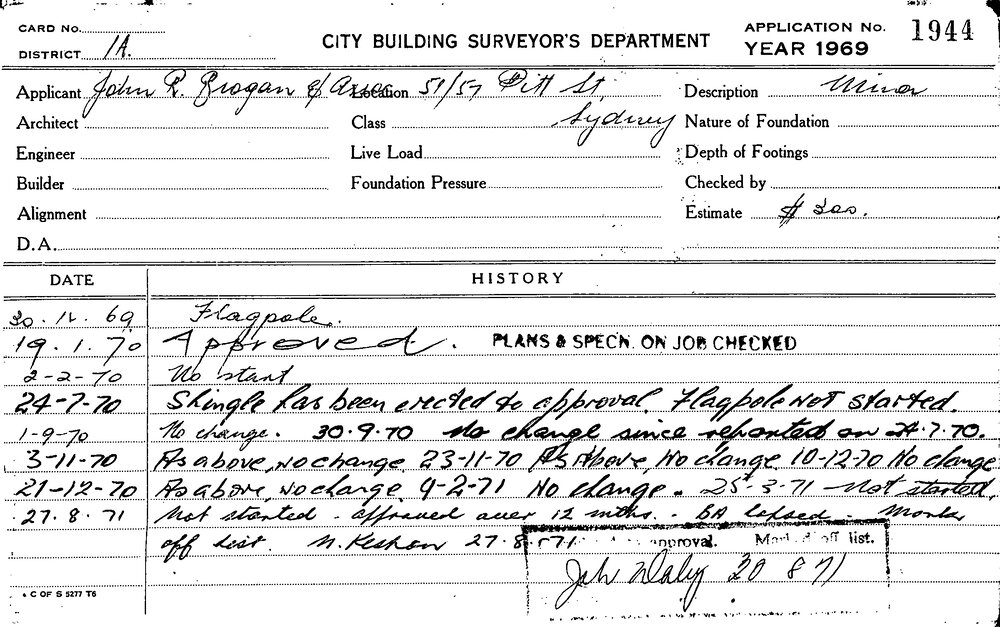 CARD No.
DISTRICT 1A.
CITY BUILDING SURVEYOR'S DEPARTMENT
APPLICATION No. 1944
YEAR 1969
Applicant John R. Brogan & Assoc Location 51/57 Pitt St, Description Minor
Architect Class Sydney Nature of Foundation
Engineer Live Load Depth of Footings
Builder Foundation Pressure Checked by
Alignment Estimate $ 300.
D.A.
DATE HISTORY
30.12.69 Flagpole.
19.1.70 Approved. PLANS & SPECN. ON JOB CHECKED
2-2-70 No start
24-7-70 Shingle has been erected to approval. Flagpole not started.
1-9-70 No change. 30.9.70 No change since reported on 24.7.70.
3-11-70 As above, no change 23-11-70 As Above, No change 10-12-70 No change
21-12-70 As above, no change 4-2-71 No change. 25-3-71 Not started.
27.8.71 Not started - approved over 12 mths. - BA lapsed. Mark
off list. 27.8.71 approval. Marked off list.
Daly 30 8 71
C OF S 5277 T6